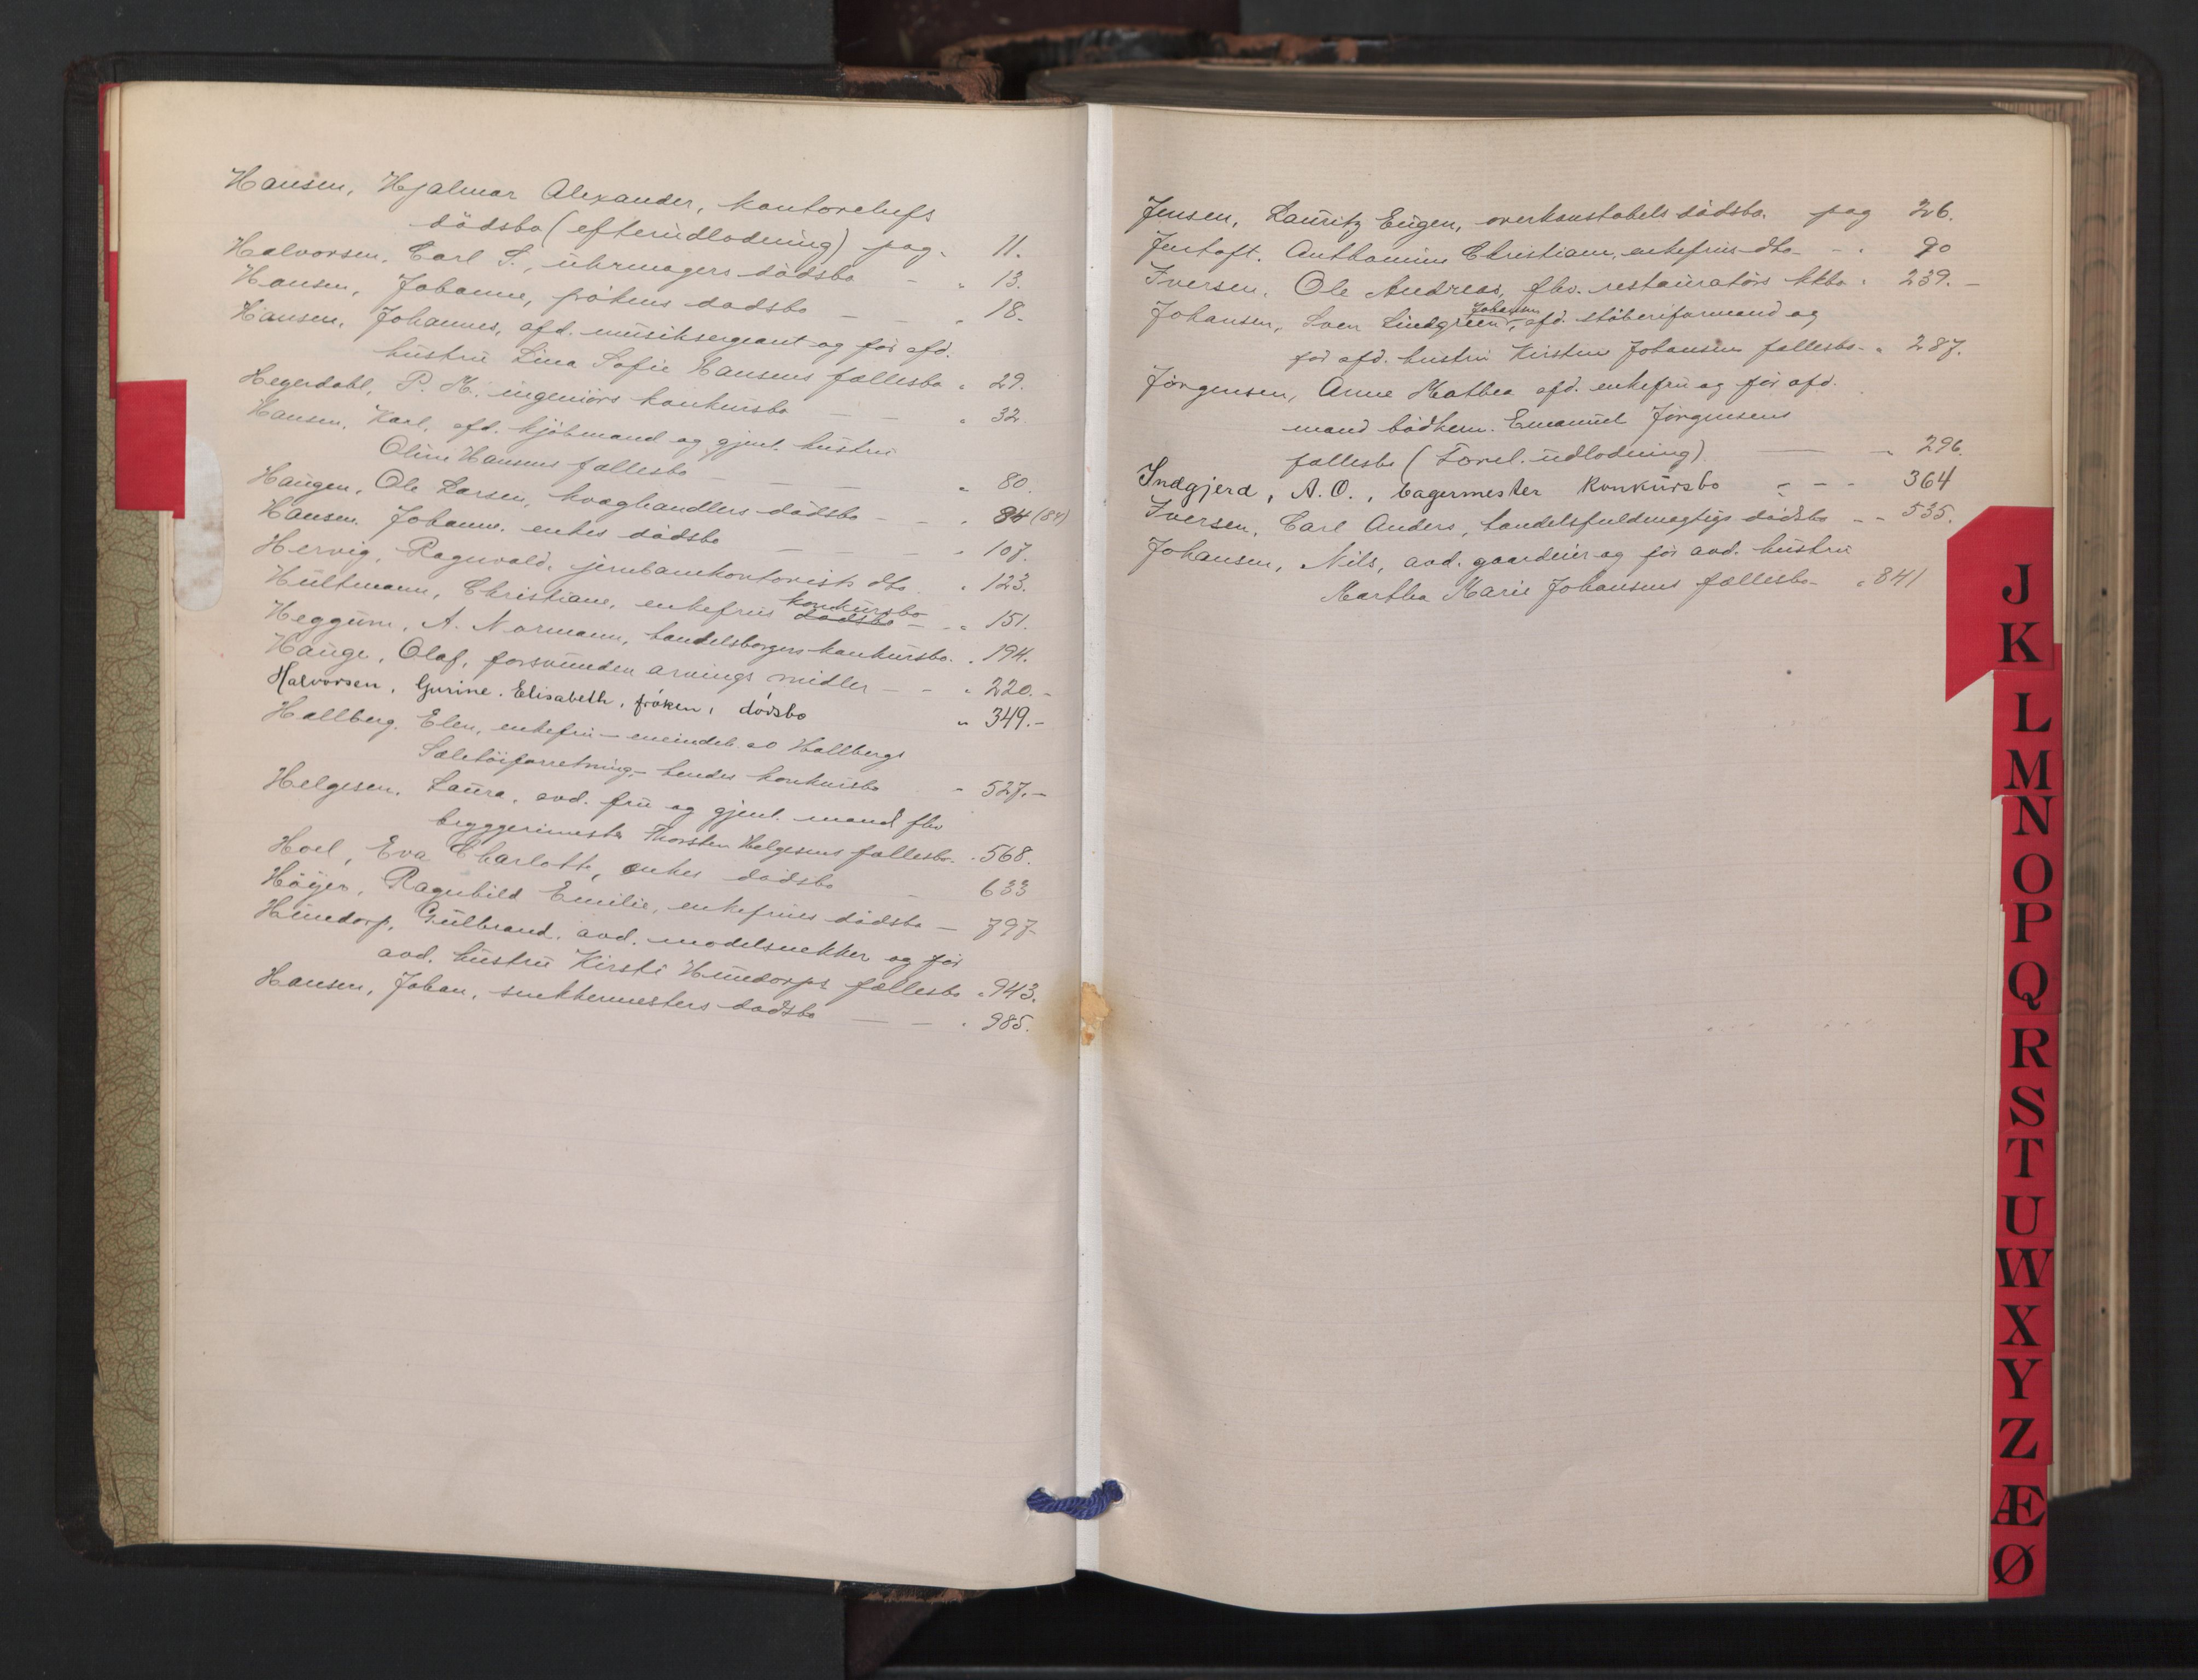 Hansen, Hjalmar Alexander, kontorchefs
dödsbo (efterudlodning) pag. 11.
Halvorsen, Carl S., uhrmagers dödsbo - " 13.
Hansen, Johanne, frökens dødsbo - - " 18.
Hansen, Johannes, afd. musiksergeant og før afd.
hustru Lina Sofie Hansens fællesbo " 29.
Hegerdahl, P. M. ingeniörs konkursbo - - " 32.
Hansen, Karl, afd. kjöbmand og gjenl. hustru
Oline Hansens fællesbo - - - " 80.
Haugen, Ole Larsen, kvæghandlers dödsbo - - " 84 (84)
Hansen, Johanne, enkes dödsbo - - - " 107.
Hervig, Ragnvald, jernbanekontorists dto. " 123.
Hultmann, Christiane, enkefrues dødsbo konkursbo - " 151.
Heggum, A. Normann, handelsborgers konkursbo. " 194.
Hauge, Olaf, forsvunden arvings midler - - " 220.-
Halvorsen, Gurine Elisabeth, frøken, dødsbo " 349.-
Hallberg, Elen, enkefru - eneindeh. av Hallbergs
Seletöiforretning - hendes konkursbo " 527.-
Helgesen, Laura, avd. fru og gjenl. mand fhv
bryggerimester Thorsten Helgesens fællesbo. " 568.
Hoel, Eva Charlotte, enkes dødsbo - 633
Höyer, Ragnhild Emilie, enkefrues dödsbo - 797-
Hundorp, Gulbrand, avd. modelsnekker og før
avd. hustru Kirsti Hundorps fællesbo " 943.
Hansen, Johan, snekkermesters dødsbo - - " 985.
Jensen, Lauritz Eugen, overkonstabels dödsbo. pag 26.
Anthomine Christiane, enkefrues dto - - " 90
Iversen, Ole Andreas, fhv. restauratörs kkbo " 239.-
Johansen, Sven Lindgreen Johansen, afd. støberiformand og
før afd. hustru Kirstine Johansens fællesbo - " 287.
Jörgensen, Anne Mathea afd. enkefru og før afd.
mand bödkerm. Emanuel Jörgensens
fællesbo (Forel. udlodning). - " 296.
Indgjerd, A. O., bagermester konkursbo - - - 364
Iversen, Carl Anders, handelsfuldmægtigs dødsbo - - 535.
Johansen, Nils, avd. gaardeier og før avd. hustru
Marthea Marie Johansens fællesbo - " 841
J
K
L
M
N
O
P
Q
R
S
T
U
W
X
Y
Z
Æ
Ø